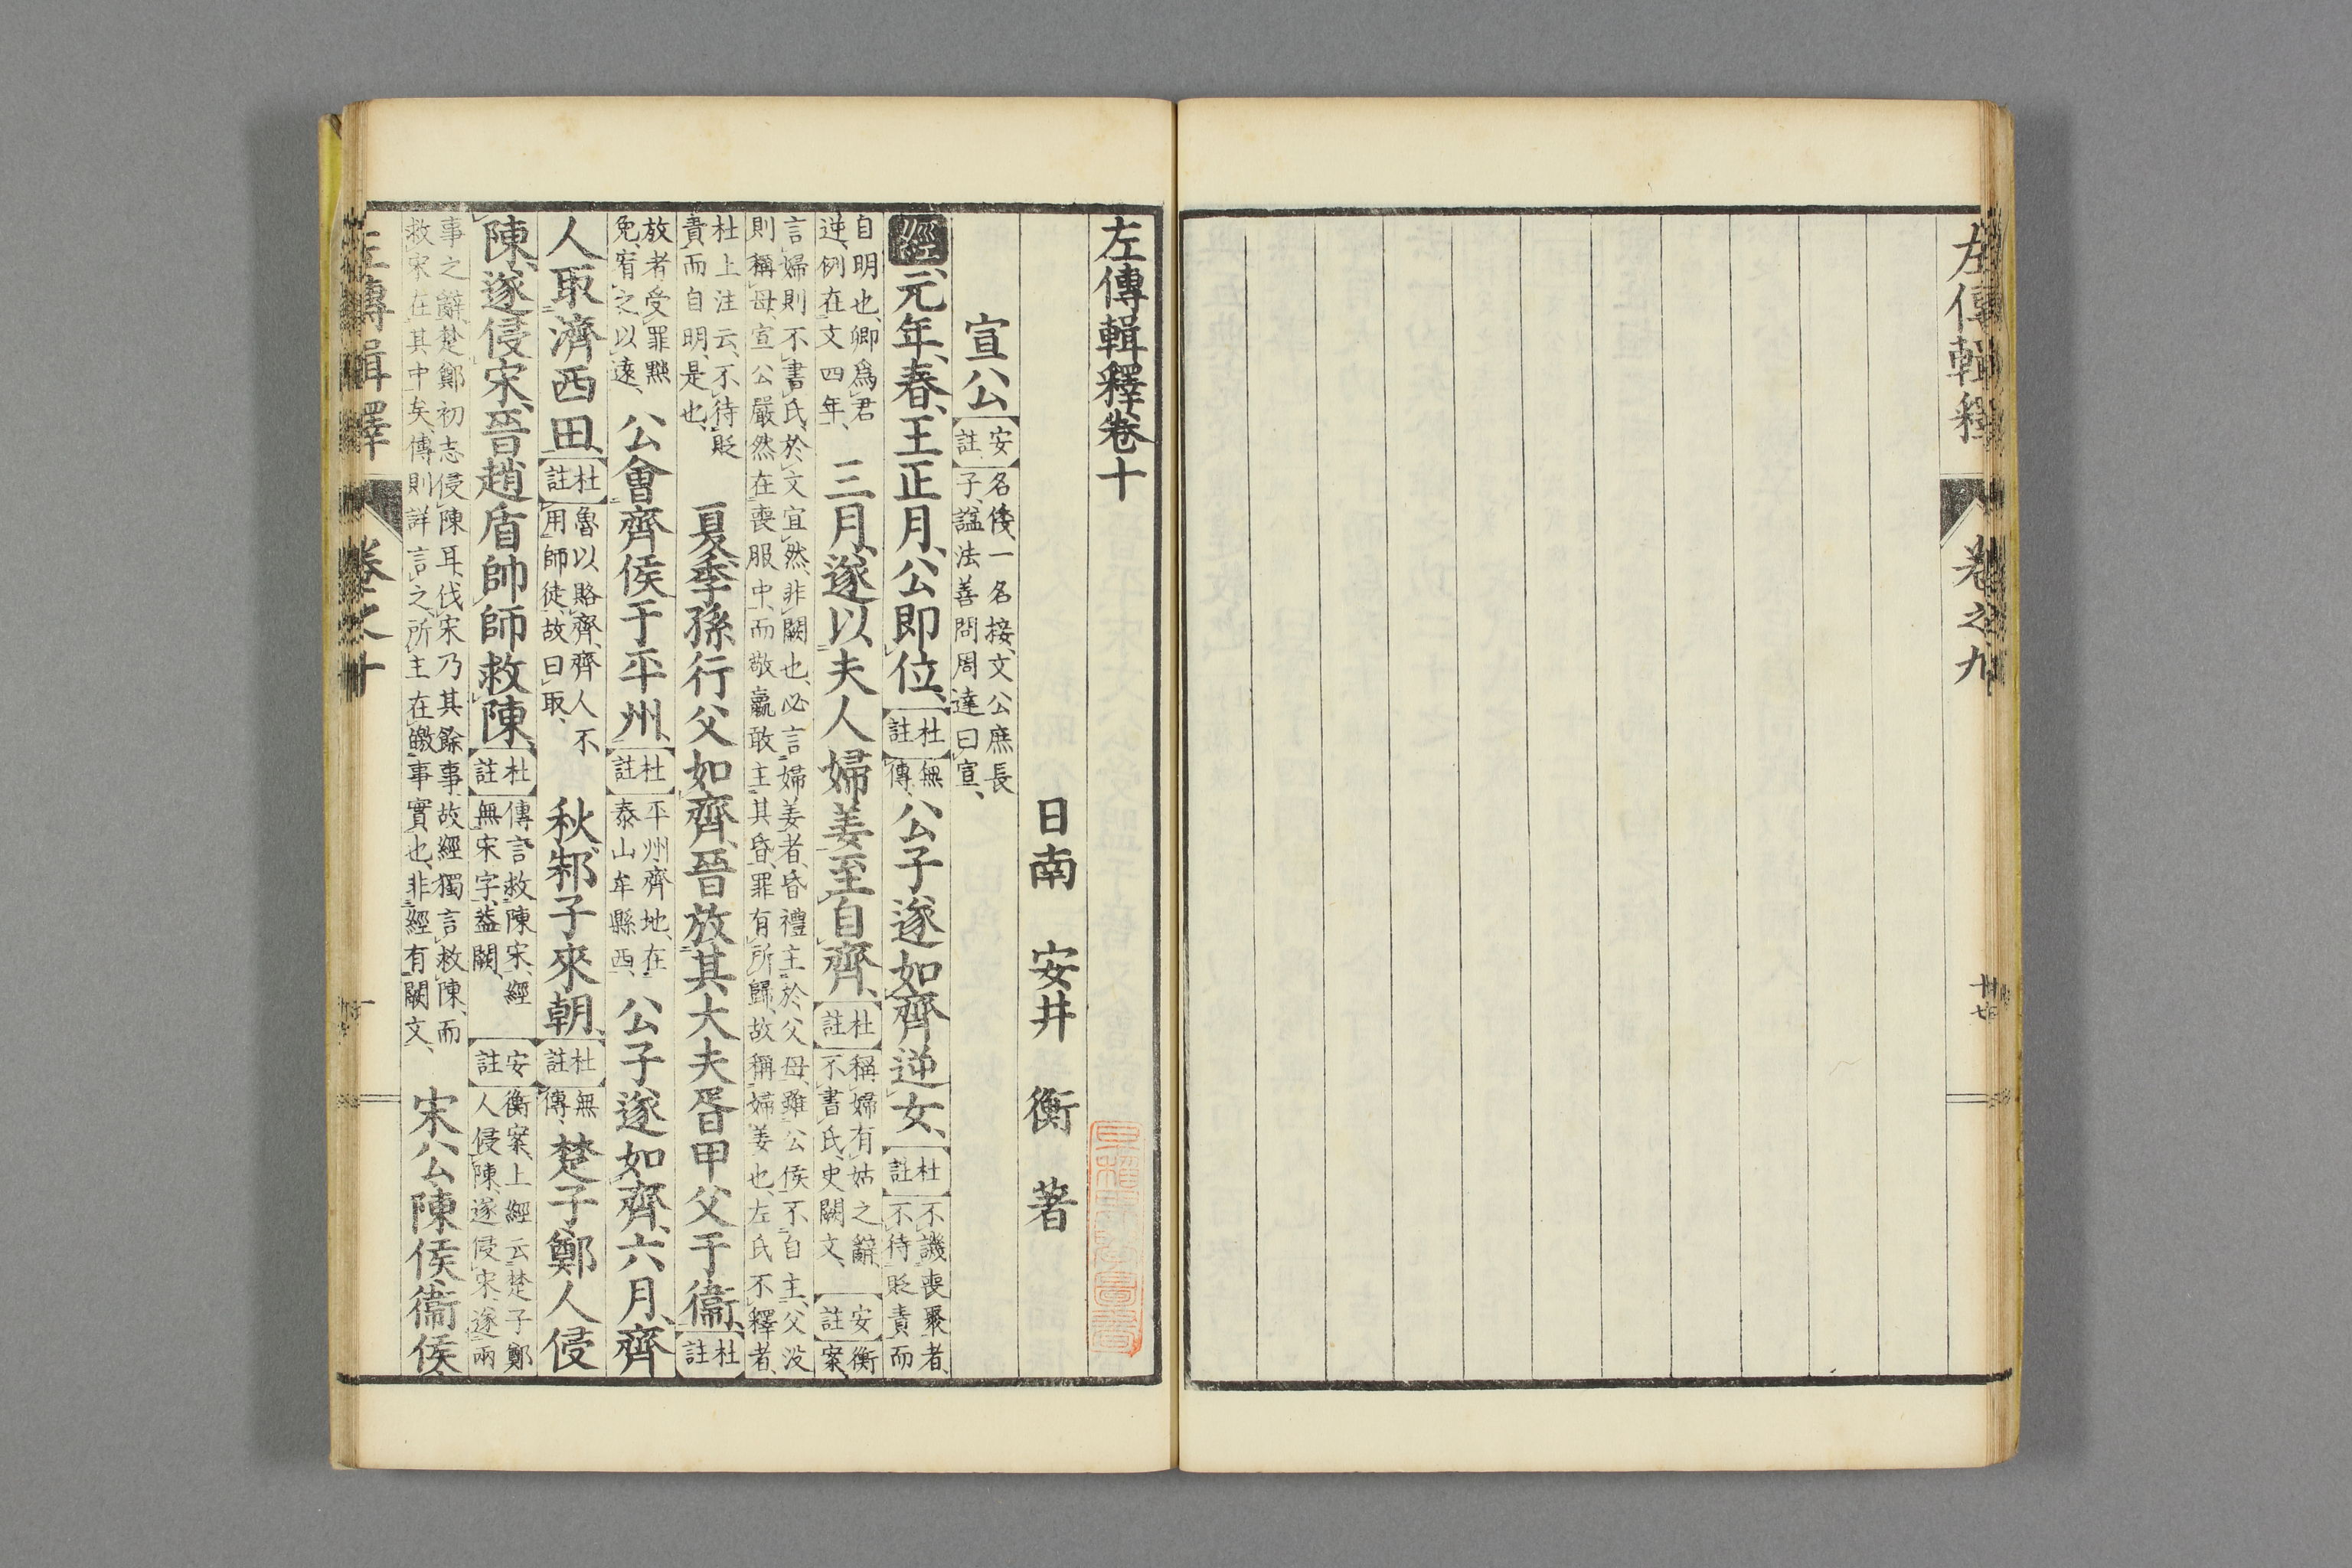 左傳輯釋
卷之九
廿七
左傳輯釋卷十
日南 安井 衡 著
宣公 安註 名俀一名接、文公庶長子、諡法善問周達曰宣、
經元年、春、王正月、公即位、杜註 無傳、公子遂如齊逆女、杜註 不譏喪娶者、不待貶責而
自明也、卿爲君逆、例在文四年、 三月、遂以夫人婦姜至自齊、杜註 稱婦有姑之辭、不書氏、史闕文、 安註 衡案、
言婦則不書氏、於文宜然、非闕也、必言婦姜者、昏禮主於父母、雖公侯不自主、父没則稱母、宣公嚴然在喪服中、而敬嬴敢主其昏、罪有所歸、故稱婦姜也、左氏不釋者、
杜上注云、不待貶責而自明、是也、 夏季孫行父如齊、晉放其大夫胥甲父于衞、杜註
放者受罪黜免、宥之以遠、 公會齊侯于平州、杜註 平州齊地、在泰山牟縣西、 公子遂如齊、六月、齊
人取濟西田、杜註 魯以賂齊、齊人不用師徒、故曰取、 秋邾子來朝、杜註 無傳、楚子鄭人侵
陳、遂侵宋、晉趙盾帥師救陳、杜註 傳言救陳宋、經無宋字、蓋闕、 安註 衡案、上經云楚子鄭人侵陳、遂侵宋、遂兩
事之辭、楚鄭初志侵陳耳、伐宋乃其餘事、故經獨言救陳、而救宋在其中矣、傳則詳言之、所主在皦事實也、非經有闕文、 宋公陳侯衞侯
左傳輯釋
卷之十